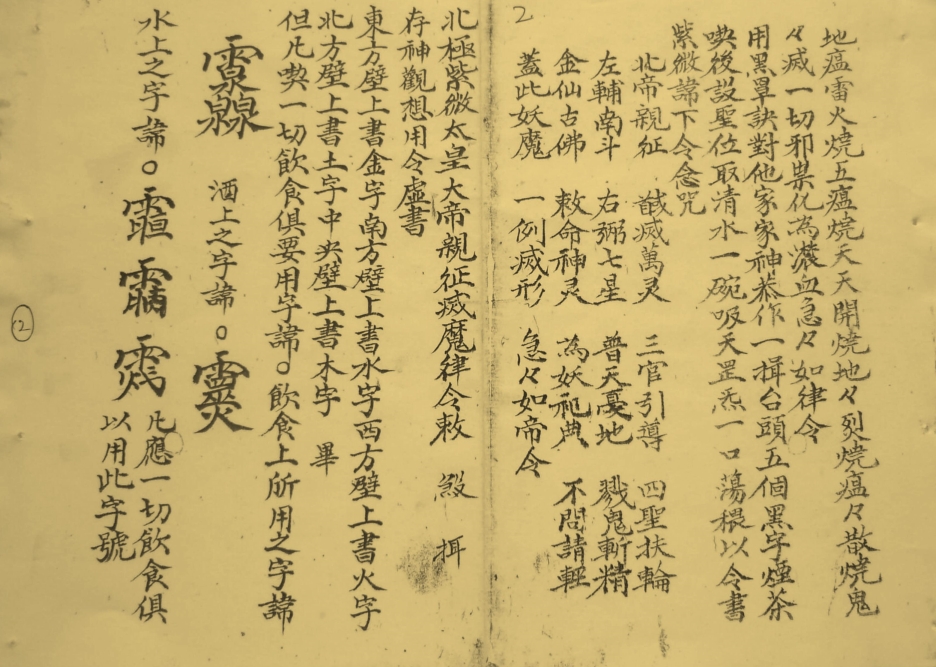 2
地瘟雷火燒五瘟燒天天開燒地々烈燒瘟々散燒鬼
々滅一切邪祟化為濃血急々如律令
用黑罩訣對他家家神恭作一揖台頭五個黑字煙茶
喚後設聖位取清水一碗吸天罡炁一口蕩穢以令書
紫微諱下令念咒
北帝親征 馘滅萬灵 三官引導 四聖扶輪
左輔南斗 右弼七星 普天憂地 戮鬼斬精
金仙古佛 敕命神灵 為妖祀典 不問請輕
蓋此妖魔 一例滅形 急々如帝令
北極紫微太皇大帝親征滅魔律令敕
存神觀想用令虛書
東方壁上書金字南方壁上書水字西方壁上書火字
北方壁上書土字中央壁上書木字 畢
但凡喫一切飲食俱要用字諱。飲食上所用之字諱
酒上之字諱。
水上之字諱。
凡應一切飲食俱
以用此字號